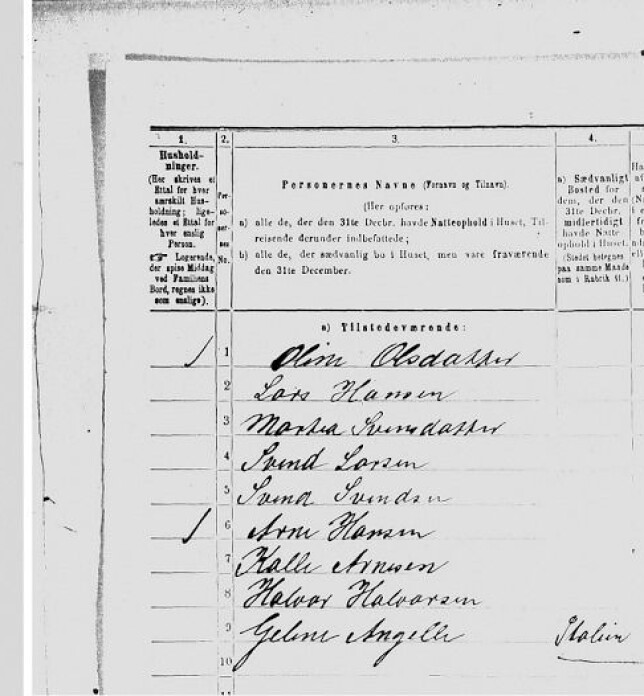 1.
Hushold-
ninger.
(Her skrives et
Ettal for hver
særskilt Hus-
holdning; lige-
ledes et Ettal for
hver enslig
Person.
☞ Logerende,
der spise Middag
ved Familiens
Bord, regnes ikke
som enslige).
2.
Per-
so-
ner-
nes
Nr.
3.
Personernes Navne (Fornavn og Tilnavn).
(Her opføres:
a) alle de, der den 31te Decbr. havde Natteophold i Huset, Til-
reisende derunder indbefattede;
b) alle de, der sædvanlig bo i Huset, men vare fraværende
den 31te December.
4.
a) Sædvanligt
Bosted for
dem, der den
31te Decbr.
midlertidigt
havde Natte-
ophold i Huset.
(Stedet betegnes
paa samme Maade
som i Rubrik 11.)
a) Tilstedeværende:
1 1 Oline Olsdatter
2 Lars Hansen
3 Martea Svensdatter
4 Svend Larsen
5 Svend Svendsen
1 6 Arne Hansen
7 Kalle Arnesen
8 Halvor Halvorsen
9 Gelene Angelle Italien
10